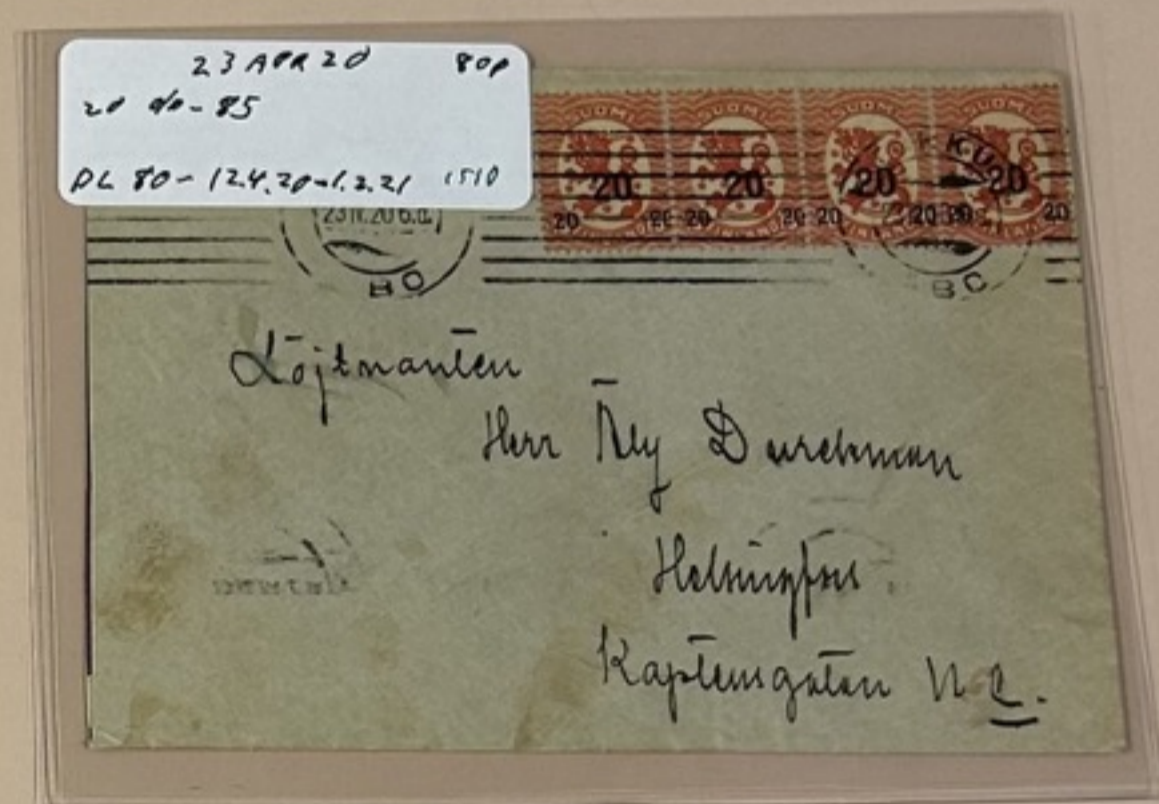 23 APR 20 80P
20 - 85
DL 80 - 12.4.20-1.2.21 1510
SUOMI SUOMI SUOMI SUOMI
20 20 20 20
20 20 20 20 20 20 20 20
23.IV.20 6.
BC BC
Löjtnanten
Herr Aly Durchman
Helsingfors
Kaptensgatan N